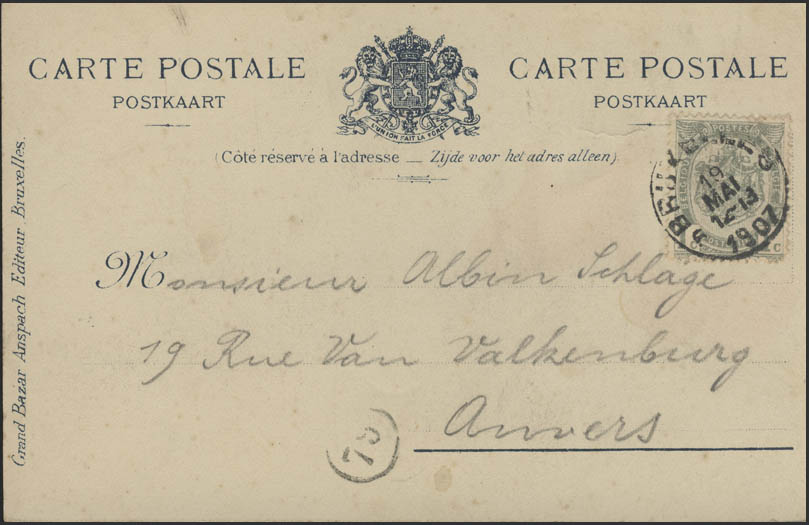 CARTE POSTALE
POSTKAART
L'UNION FAIT LA FORCE
CARTE POSTALE
POSTKAART
(Côté réservé à l'adresse — Zijde voor het adres alleen)
BRUXELLES
19
MAI
1907
Monsieur Albin Schlage
19 Rue Van Valkenburg
Anvers
78
Grand Bazar Anspach Editeur Bruxelles.